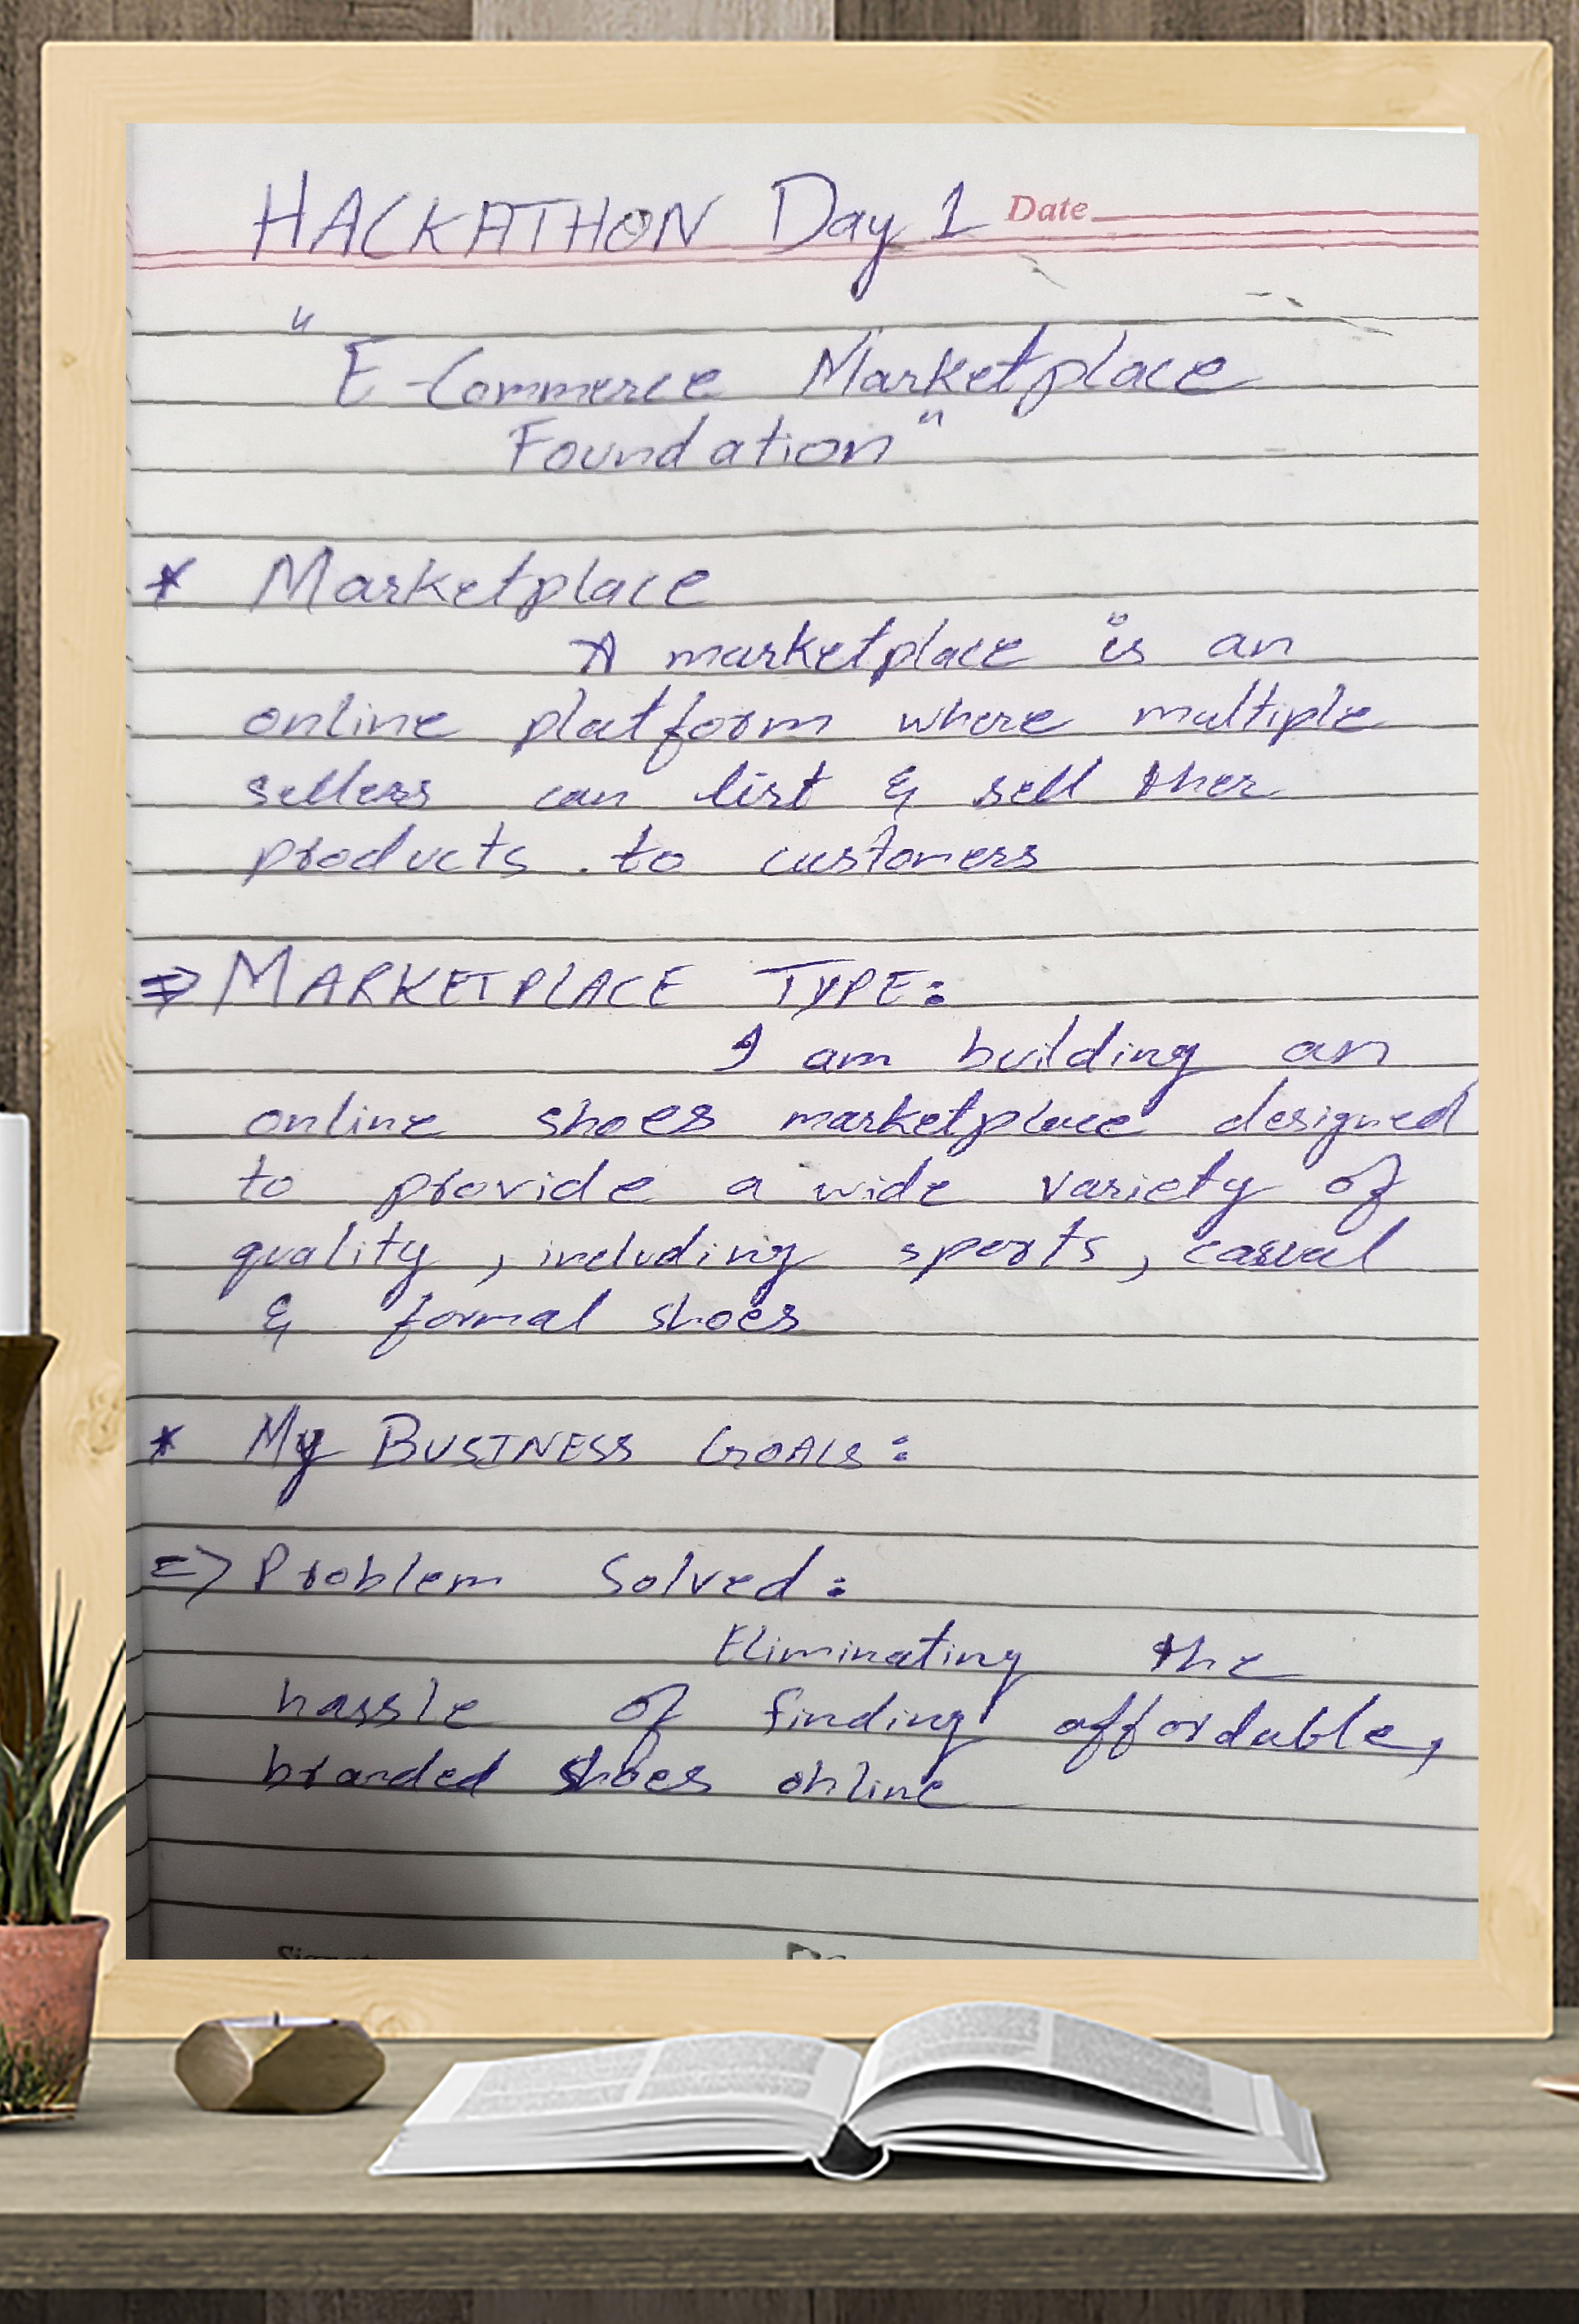 HACKATHON Day 1 Date
"
E-Commerce Marketplace
Foundation"
* Marketplace
A marketplace is an
online platform where multiple
sellers can list & sell ther
products. to customers
⇒ MARKETPLACE TYPE:
I am building an
online shoes marketplace designed
to provide a wide variety of
quality, including sports, casual
& formal shoes
* My BUSINESS GOALS:
=> Problem Solved:
Eliminating the
hassle of finding affordable,
branded shoes online